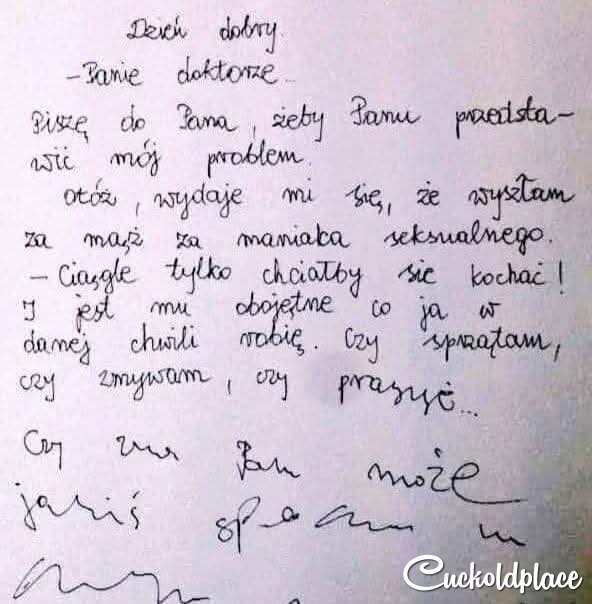 Dzień dobry.
- Panie doktorze..
Piszę do Pana, żeby Panu przedsta-
wić mój problem.
Otóż, wydaje mi się, że wyszłam
za mąż za maniaka seksualnego.
- Ciągle tylko chciałby się kochać!
I jest mu obojętne co ja w
danej chwili robię. Czy sprzątam,
czy zmywam, czy
Czy zna Pan może
jakiś
Cuckoldplace